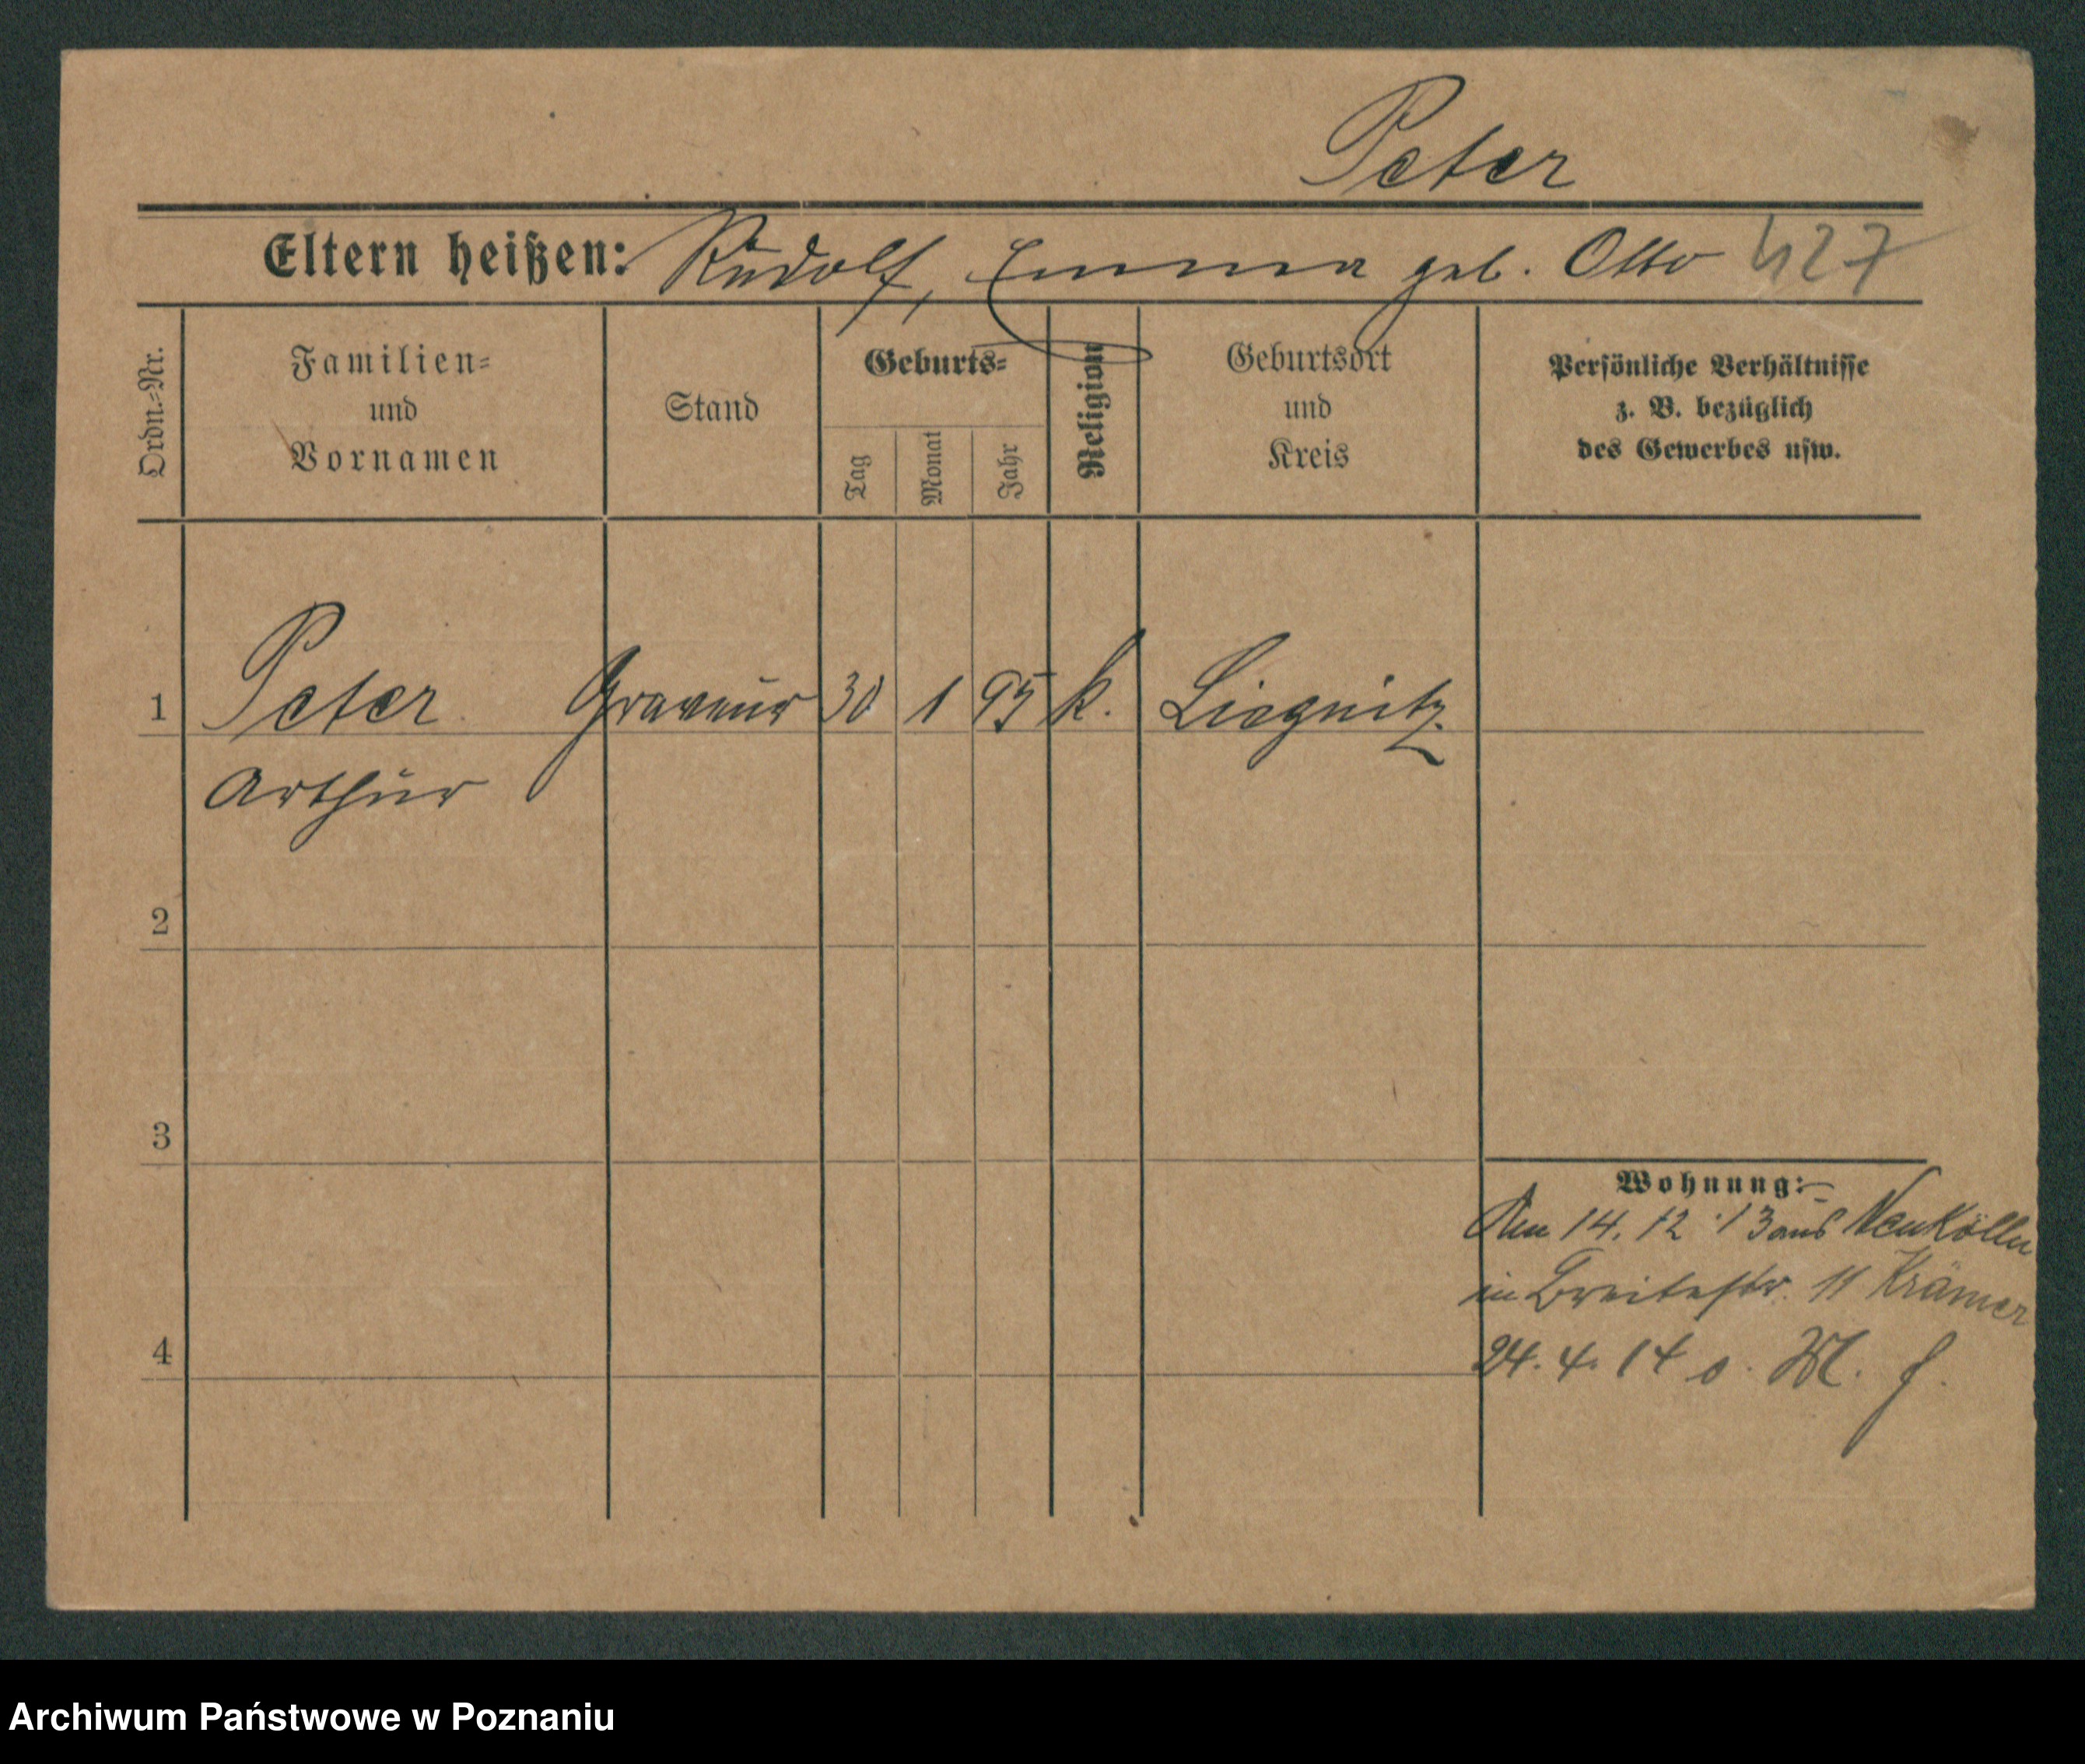 Peter
Eltern heißen: Rudolf, Emma geb. Otto 427
Ordn.-Nr.
Familien-
und
Vornamen
Stand
Geburts-
Tag
Monat
Jahr
Religion
Geburtsort
und
Kreis
Persönliche Verhältnisse
z. B. bezüglich
des Gewerbes usw.
1 Peter Graveur 30 1 95 k. Liegnitz
Arthur
2
3
4
Wohnung:
Am 14. 12. 13 aus Neukölln
in Breitestr. 11 Krämer
24. 4. 14 o. M. f.
Archiwum Państwowe w Poznaniu